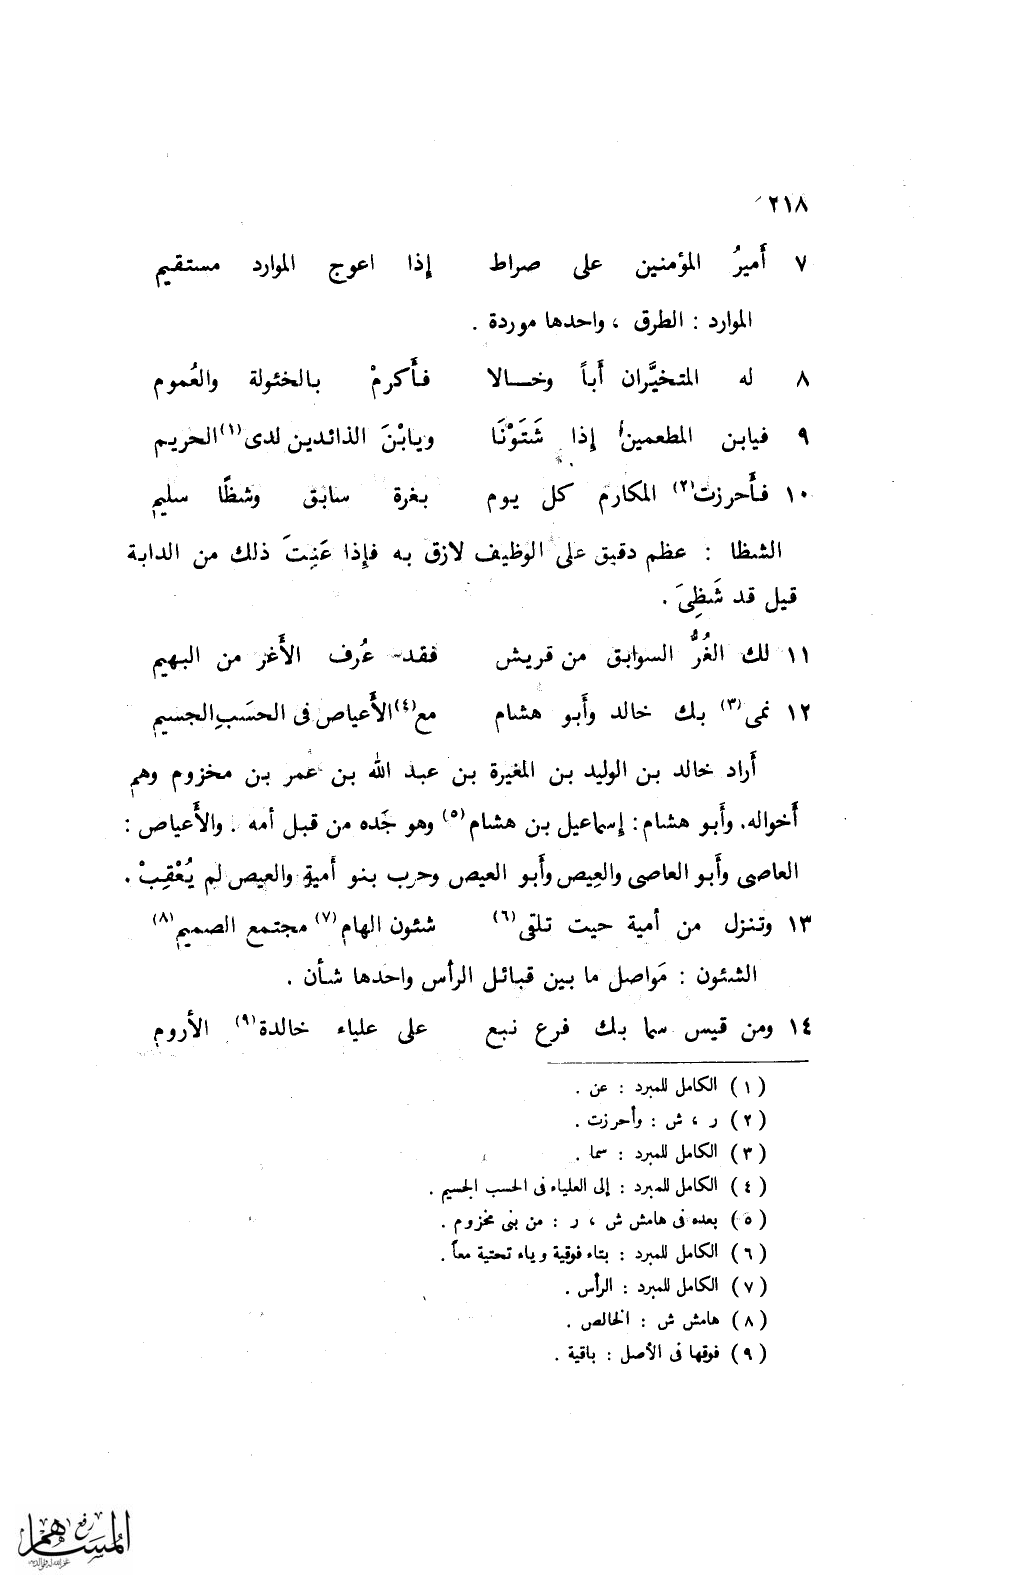 ٢١٨
٧ أَميرُ المؤمنين على صراط إذا اعوج الموارد مستقيم
الموارد : الطرق ، واحدها موردة .
٨ له المتخيَّران أَباً وخـالا فأَكرمْ بالخئولة والعُموم
٩ فيابن المطعمين إذا شَتَوْنَا ويابْنَ الذائدين لدى(١) الحريم
١٠ فأَحرزت(٢) المكارم كل يوم بغرة سابق وشظًا سليم
الشظا : عظم دقيق على الوظيف لازق به فإذا عَنِتَ ذلك من الدابة
قيل قد شَظِىَ .
١١ لك الغُرُّ السوابق من قريش فقد عُرف الأَغر من البهيم
١٢ نمى(٣) بك خالد وأَبو هشام مع(٤) الأَعياص فى الحسَبِ الجسيم
أَراد خالد بن الوليد بن المغيرة بن عبد الله بن عمر بن مخزوم وهم
أَخواله. وأَبو هشام: إسماعيل بن هشام(٥) وهو جَده من قبل أمه . والأَعياص :
العاصى وأَبو العاصى والعِيص وأَبو العيص وحرب بنو أمية والعيص لم يُعْقِبْ .
١٣ وتنزل من أمية حيت تلقى(٦) شئون الهام(٧) مجتمع الصميم(٨)
الشئون : مَواصل ما بين قبائل الرأس واحدها شأن .
١٤ ومن قيس سما بك فرع نبع على علياء خالدة(٩) الأروم
(١) الكامل للمبرد : عن .
(٢) ر ، ش : وأحرزت .
(٣) الكامل للمبرد : سما .
(٤) الكامل للمبرد : إلى العلياء فى الحسب الجسيم .
(٥) بعده فى هامش ش ، ر : من بنى مخزوم .
(٦) الكامل للمبرد : بتاء فوقية وياء تحتية معاً .
(٧) الكامل للمبرد : الرأس .
(٨) هامش ش : الخالص .
(٩) فوقها فى الأصل : باقية .